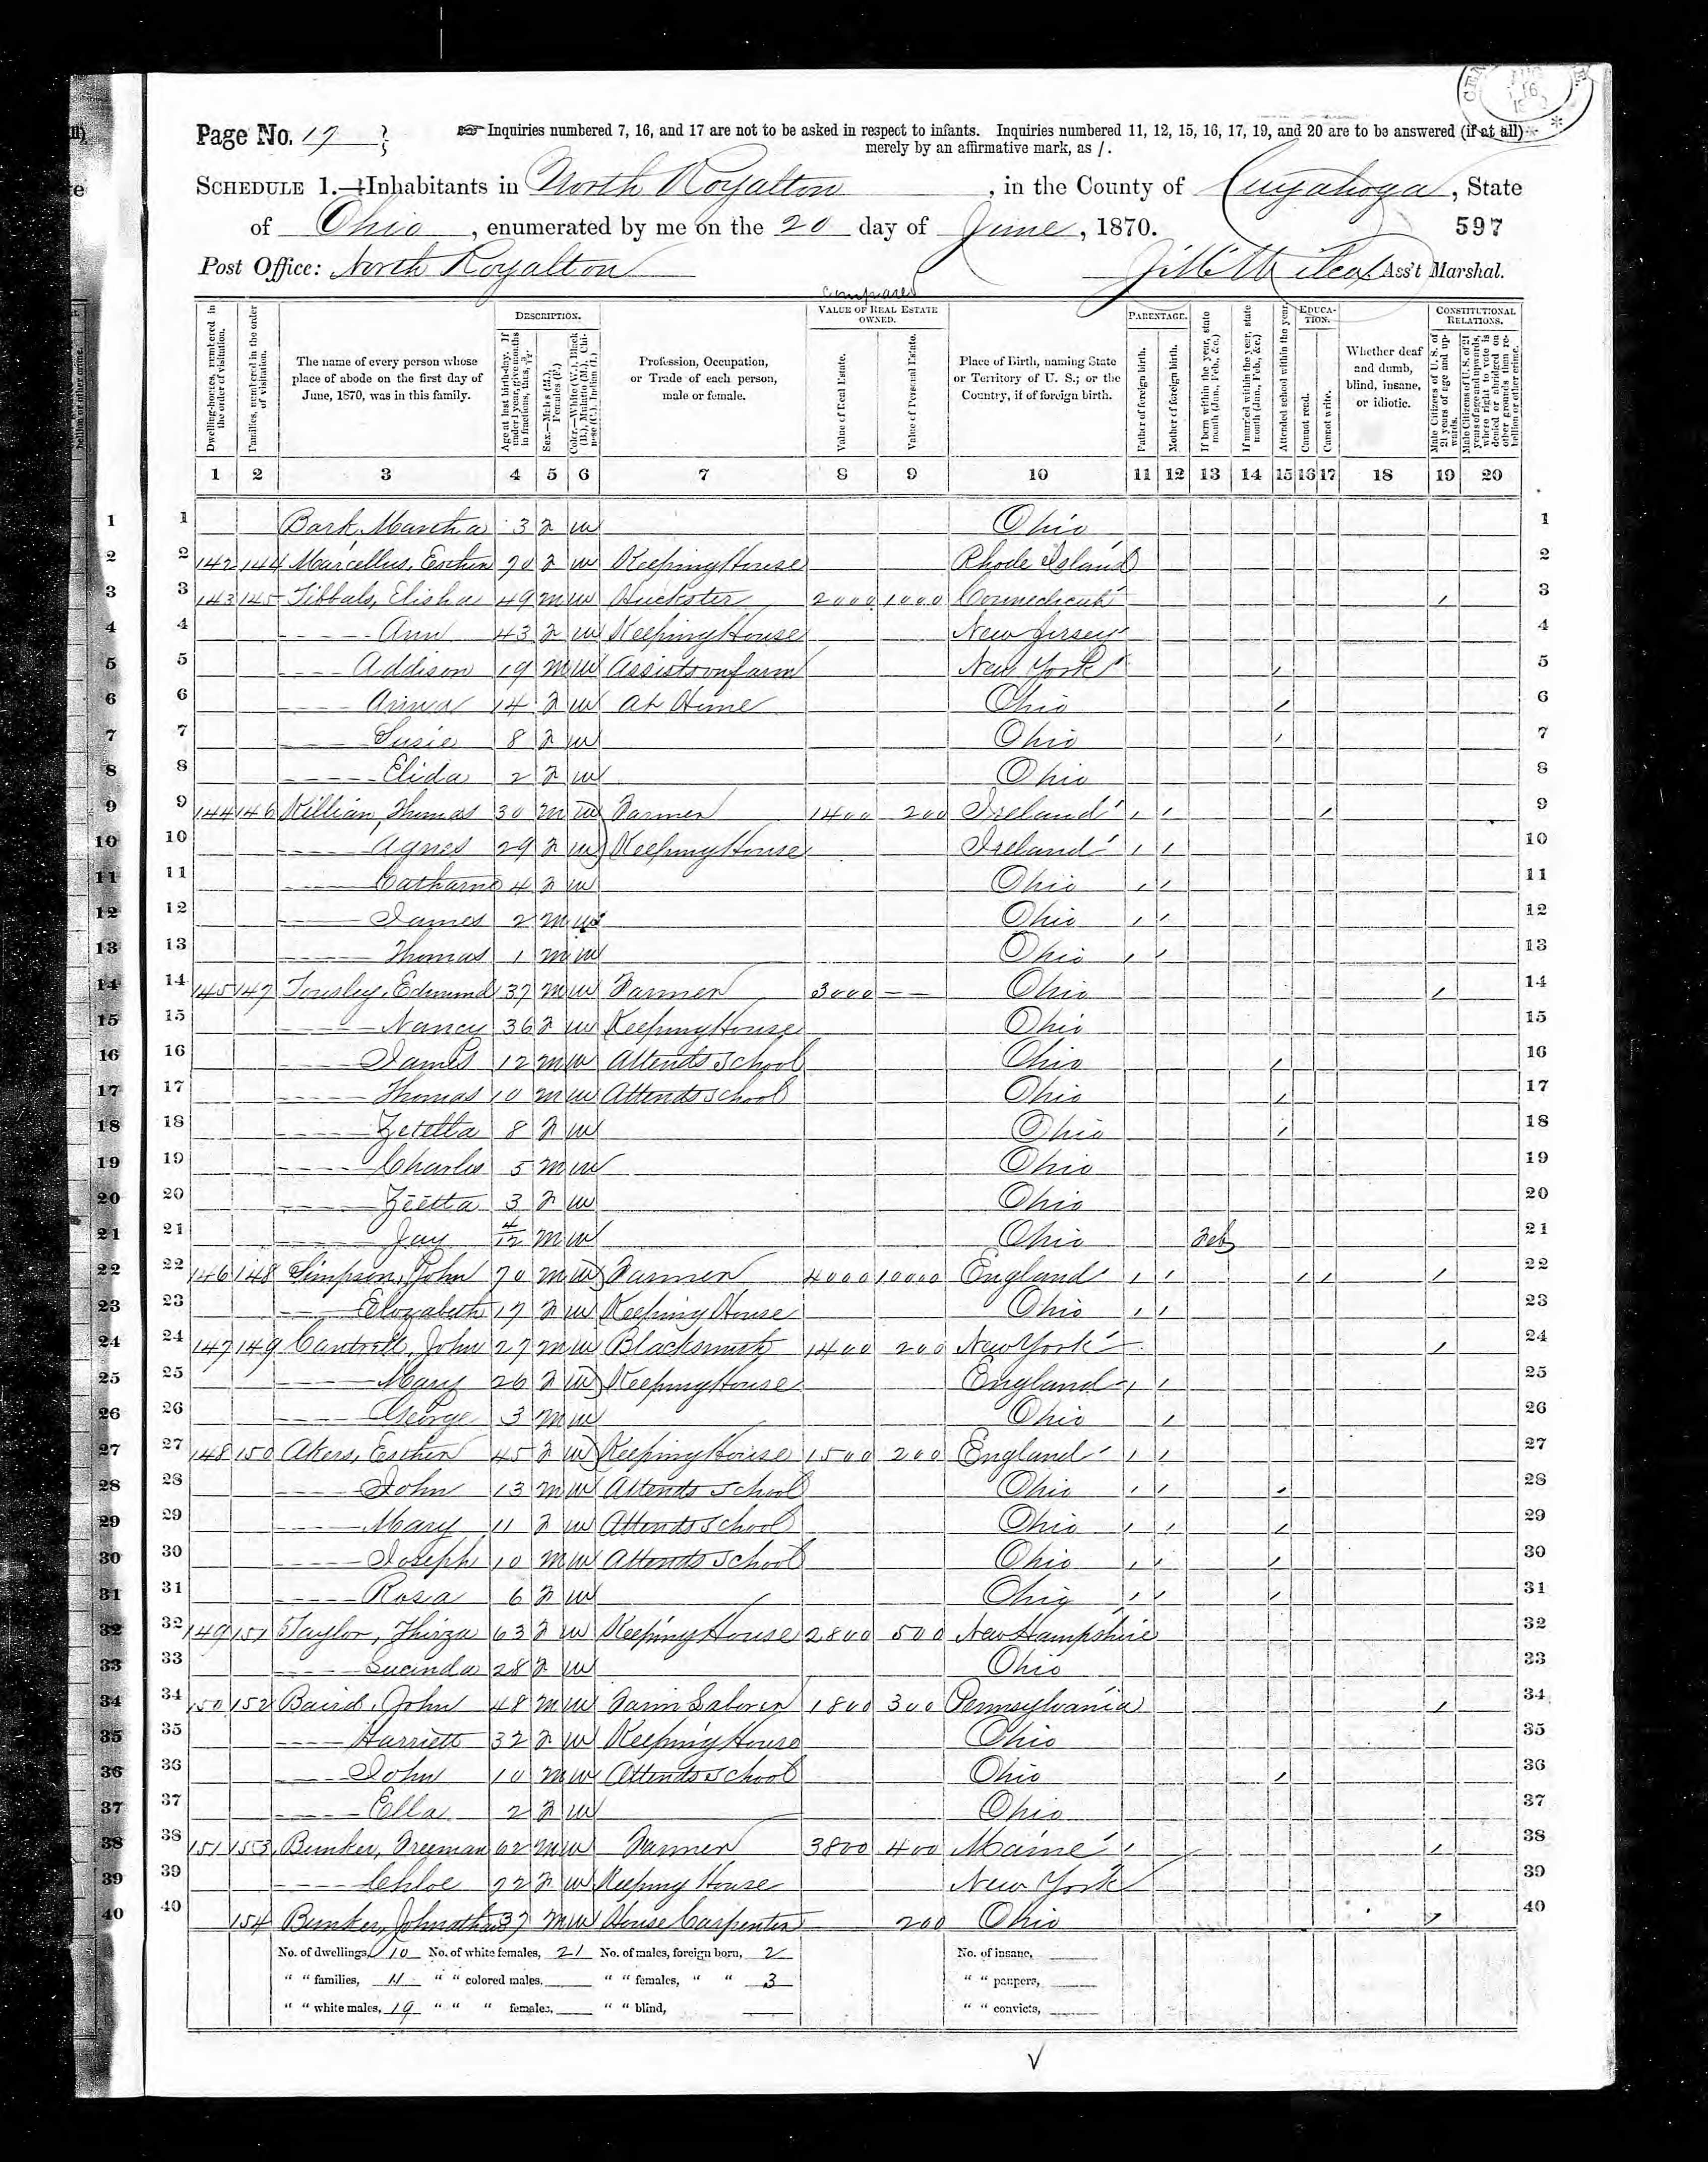 Page No. 17
☞ Inquiries numbered 7, 16, and 17 are not to be asked in respect to infants. Inquiries numbered 11, 12, 15, 16, 17, 19, and 20 are to be answered (if at all)
merely by an affirmative mark, as /.
SCHEDULE 1.—Inhabitants in North Royalton, in the County of Cuyahoga, State
of Ohio, enumerated by me on the 20 day of June, 1870. 597
Post Office: North Royalton Ass't Marshal.
Compared
DESCRIPTION. VALUE OF REAL ESTATE OWNED. PARENTAGE. EDUCATION. CONSTITUTIONAL RELATIONS.
Dwelling-houses, numbered in the order of visitation.
Families, numbered in the order of visitation.
The name of every person whose place of abode on the first day of June, 1870, was in this family.
Age at last birth-day. If under 1 year, give months in fractions, thus, 3/12.
Sex.—Males (M.), Females (F.)
Color.—White (W.), Black (B.), Mulatto (M.), Chinese (C.), Indian (I.)
Profession, Occupation, or Trade of each person, male or female.
Value of Real Estate.
Value of Personal Estate.
Place of Birth, naming State or Territory of U. S.; or the Country, if of foreign birth.
Father of foreign birth.
Mother of foreign birth.
If born within the year, state month (Jan., Feb., &c.)
If married within the year, state month (Jan., Feb., &c.)
Attended school within the year.
Cannot read.
Cannot write.
Whether deaf and dumb, blind, insane, or idiotic.
Male Citizens of U. S. of 21 years of age and upwards.
Male Citizens of U. S. of 21 years of age and upwards, where right to vote is denied or abridged on other grounds than rebellion or other crime.
1 2 3 4 5 6 7 8 9 10 11 12 13 14 15 16 17 18 19 20
1 Bark, Martha 3 F W Ohio 1
2 142 144 Marcellus, Esther 70 F W Keeping House Rhode Island 2
3 143 145 Tibbals, Elisha 49 M W Huckster 2000 1000 Connecticut / 3
4 —— Ann 43 F W Keeping House New Jersey 4
5 —— Addison 19 M W Assists on farm New York / 5
6 —— Anna 14 F W At Home Ohio / 6
7 —— Susie 8 F W Ohio / 7
8 —— Elida 2 F W Ohio 8
9 144 146 Killian, Thomas 30 M W Farmer 1400 200 Ireland / / / 9
10 —— Agnes 29 F W Keeping House Ireland / / 10
11 —— Catharine 4 F W Ohio / / 11
12 —— James 2 M W Ohio / / 12
13 —— Thomas 1 M W Ohio / / 13
14 145 147 Tousley, Edmund 37 M W Farmer 3000 —— Ohio / 14
15 —— Nancy 36 F W Keeping House Ohio 15
16 —— James 12 M W Attends School Ohio / 16
17 —— Thomas 10 M W Attends School Ohio / 17
18 —— Zetetta 8 F W Ohio / 18
19 —— Charles 5 M W Ohio 19
20 —— Zietta 3 F W Ohio 20
21 —— Jay 4/12 M W Ohio Feb 21
22 146 148 Simpson, John 70 M W Farmer 4000 10000 England / / / / / 22
23 —— Elizabeth 17 F W Keeping House Ohio / / 23
24 147 149 Cantrell, John 27 M W Blacksmith 1400 200 New York / 24
25 —— Mary 26 F W Keeping House England / / 25
26 —— George 3 M W Ohio / 26
27 148 150 Akers, Esther 45 F W Keeping House 1500 200 England / / 27
28 —— John 13 M W Attends School Ohio / / / 28
29 —— Mary 11 F W Attends School Ohio / / / 29
30 —— Joseph 10 M W Attends School Ohio / / / 30
31 —— Rosa 6 F W Ohio / / / 31
32 149 151 Taylor, Thirza 63 F W Keeping House 2800 500 New Hampshire 32
33 —— Lucinda 28 F W Ohio 33
34 150 152 Baird, John 48 M W Farm Laborer 1800 300 Pennsylvania / 34
35 —— Harriett 32 F W Keeping House Ohio 35
36 —— John 10 M W Attends School Ohio / 36
37 —— Ella 2 F W Ohio 37
38 151 153 Bunker, Freeman 62 M W Farmer 3800 400 Maine / / 38
39 —— Chloe 72 F W Keeping House New York 39
40 154 Bunker, Johnathan 37 M W House Carpenter 200 Ohio / 40
No. of dwellings, 10 No. of white females, 21 No. of males, foreign born, 2 No. of insane,
" " families, 11 " " colored males, " " females, " " 3 " " paupers,
" " white males, 19 " " " females, " " blind, " " convicts,